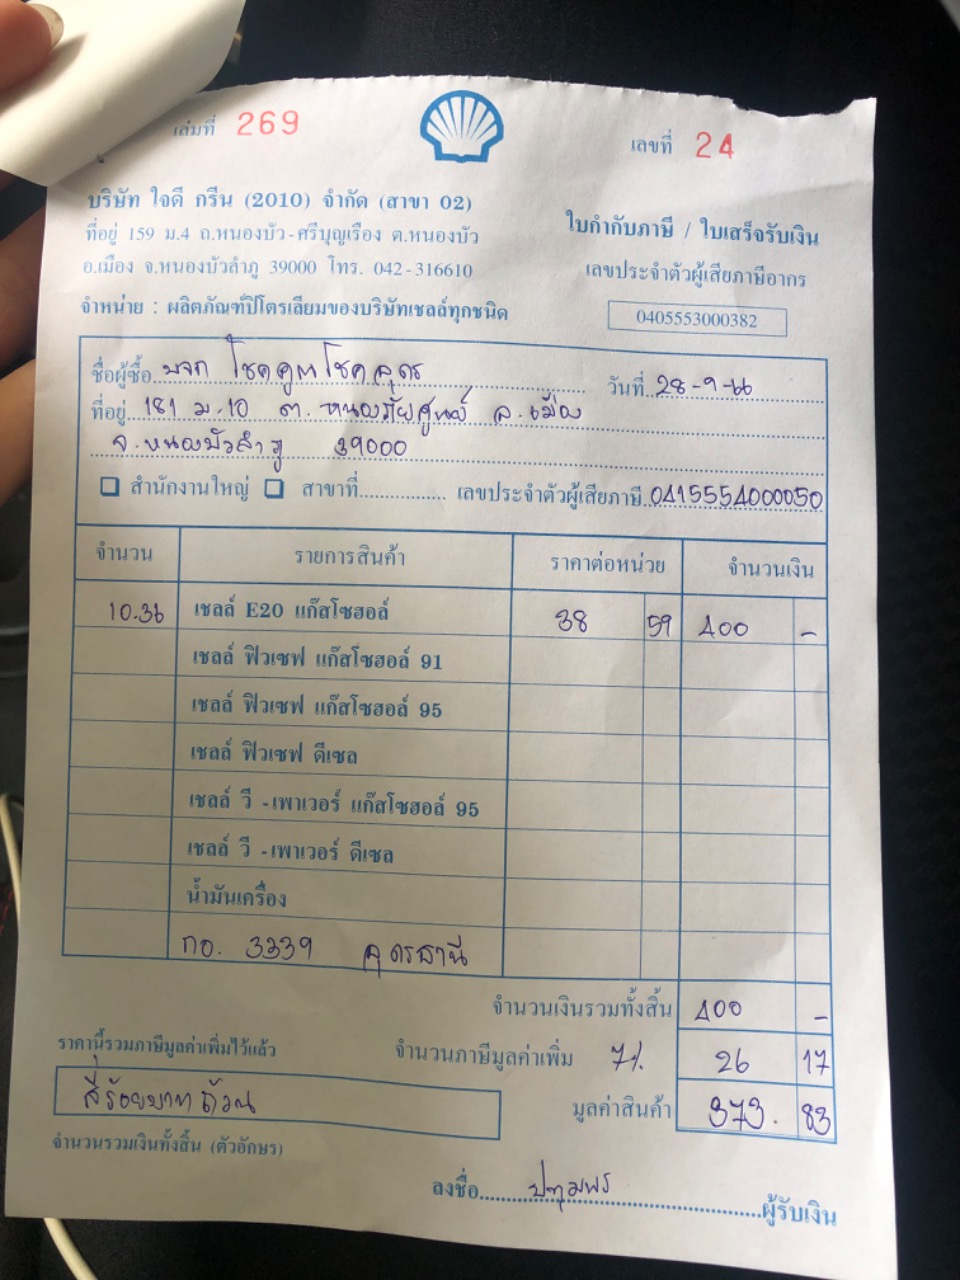 เล่มที่ 269
เลขที่ 24
บริษัท ใจดี กรีน (2010) จำกัด (สาขา 02)
ที่อยู่ 159 ม.4 ถ.หนองบัว-ศรีบุญเรือง ต.หนองบัว
อ.เมือง จ.หนองบัวลำภู 39000 โทร. 042-316610
จำหน่าย : ผลิตภัณฑ์ปิโตรเลียมของบริษัทเชลล์ทุกชนิด
ใบกำกับภาษี / ใบเสร็จรับเงิน
เลขประจำตัวผู้เสียภาษีอากร
0405553000382
ชื่อผู้ซื้อ บจก โชคคูณโชคอุดร วันที่ 28-9-66
ที่อยู่ 181 ม.10 ต. หนองภัยศูนย์ อ.เมือง
จ.หนองบัวลำภู 39000
สำนักงานใหญ่ สาขาที่ เลขประจำตัวผู้เสียภาษี 0415554000050
จำนวน รายการสินค้า ราคาต่อหน่วย จำนวนเงิน
10.36 เชลล์ E20 แก๊สโซฮอล์ 38 59 400 -
เชลล์ ฟิวเซฟ แก๊สโซฮอล์ 91
เชลล์ ฟิวเซฟ แก๊สโซฮอล์ 95
เชลล์ ฟิวเซฟ ดีเซล
เชลล์ วี -เพาเวอร์ แก๊สโซฮอล์ 95
เชลล์ วี -เพาเวอร์ ดีเซล
น้ำมันเครื่อง
กอ. 3339 อุดรธานี
จำนวนเงินรวมทั้งสิ้น 400 -
ราคานี้รวมภาษีมูลค่าเพิ่มไว้แล้ว จำนวนภาษีมูลค่าเพิ่ม 7% 26 17
สี่ร้อยบาทถ้วน มูลค่าสินค้า 373. 83
จำนวนรวมเงินทั้งสิ้น (ตัวอักษร)
ลงชื่อ ปทุมพร ผู้รับเงิน